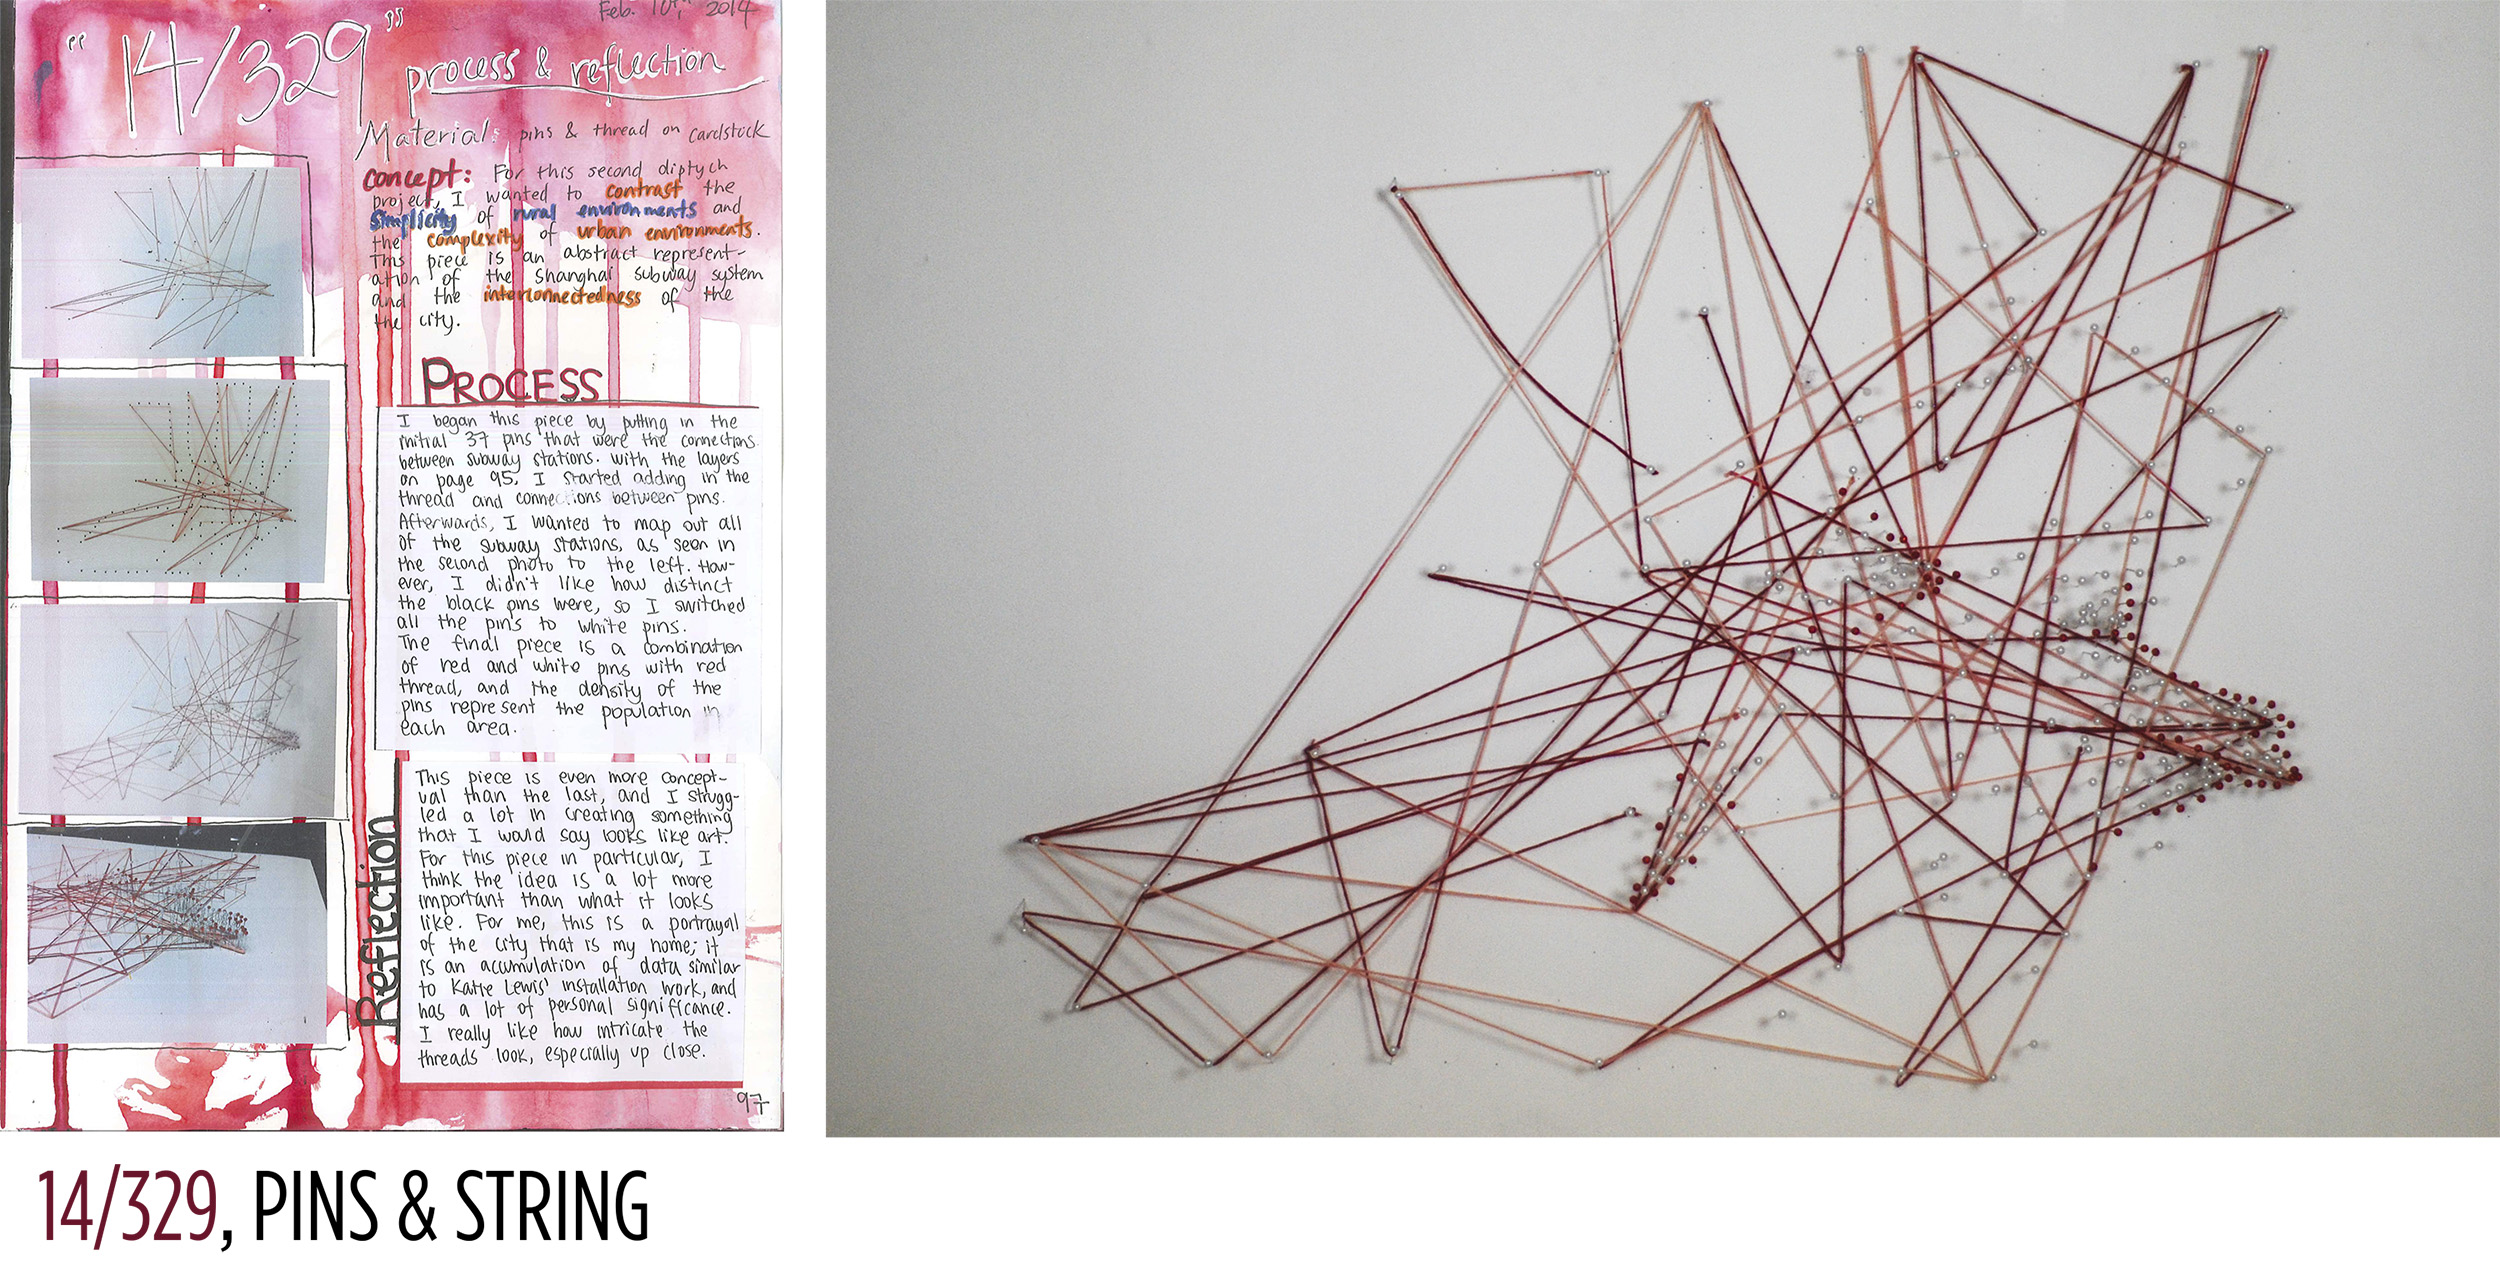 Feb. 10th, 2014
"14/329" process & reflection
Material: pins & thread on cardstock
concept: For this second diptych
project, I wanted to contrast the
simplicity of rural environments and
the complexity of urban environments.
This piece is an abstract represent-
ation of the Shanghai subway system
and the interconnectedness of the
the city.
PROCESS
I began this piece by putting in the
initial 37 pins that were the connections
between subway stations. With the layers
on page 95, I started adding in the
thread and connections between pins.
Afterwards, I wanted to map out all
of the subway stations, as seen in
the second photo to the left. How-
ever, I didn't like how distinct
the black pins were, so I switched
all the pins to white pins.
The final piece is a combination
of red and white pins with red
thread, and the density of the
pins represent the population in
each area.
Reflection
This piece is even more concept-
ual than the last, and I strugg-
led a lot in creating something
that I would say looks like art.
For this piece in particular, I
think the idea is a lot more
important than what it looks
like. For me, this is a portrayal
of the city that is my home; it
is an accumulation of data similar
to Katie Lewis' installation work, and
has a lot of personal significance.
I really like how intricate the
threads look, especially up close.
97
14/329, PINS & STRING